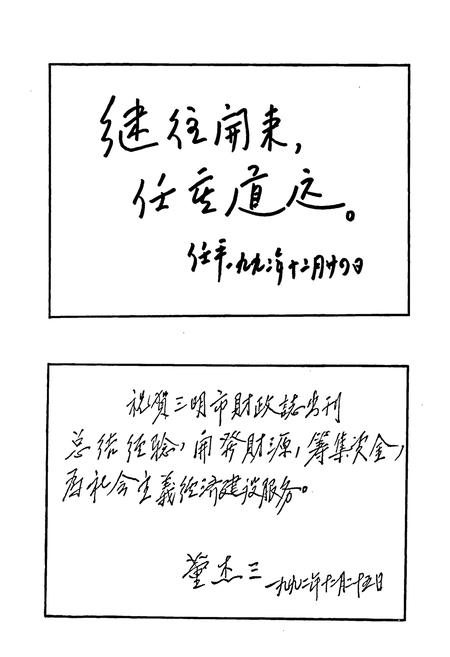 继往開来，
任重道远。
任平.一九九二年十二月廿四日
祝賀三明市財政誌出刊
总结经验，開發財源，筹集资金，
为社会主義经济建设服务。
董杰三 一九九二年十二月二十五日